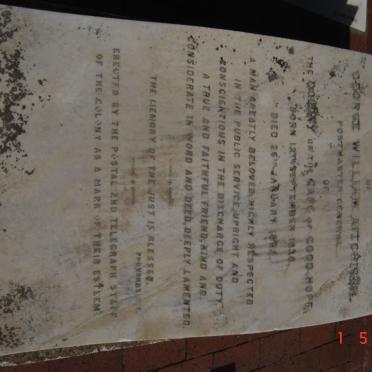 OF
GEORGE WILLIAM AITCHISON
POSTMASTER GENERAL
OF
THE COLONY OF THE CAPE OF GOOD HOPE,
BORN 12TH SEPTEMBER
DIED 26 JANUARY
A MAN GREATLY BELOVED, HIGHLY RESPECTED
IN THE PUBLIC SERVICE, UPRIGHT AND
CONSCIENTIOUS IN THE DISCHARGE OF DUTY.
A TRUE AND FAITHFUL FRIEND, KIND AND
CONSIDERATE IN WORD AND DEED, DEEPLY LAMENTED.
THE MEMORY OF THE JUST IS BLESSED.
PROVERBS
ERECTED BY THE POSTAL AND TELEGRAPH STAFF
OF THE COLONY AS A MARK OF THEIR ESTEEM
1 5